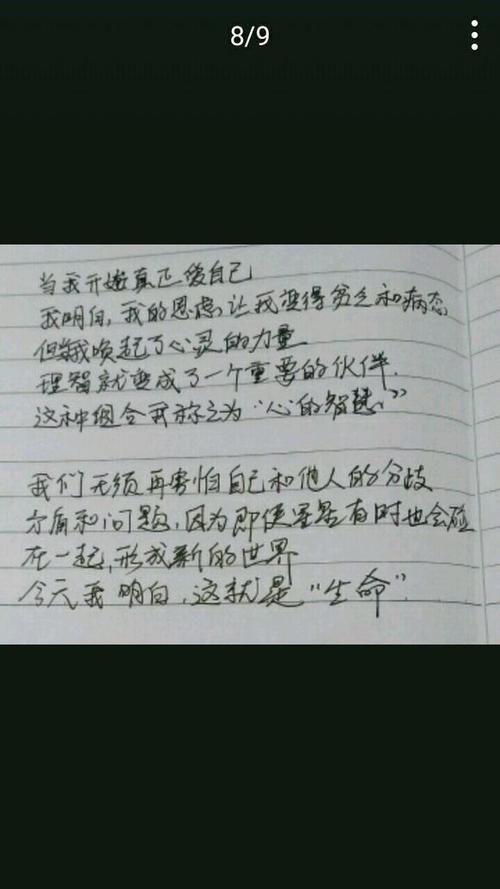 8/9
当我开始真正爱自己
我明白，我的思虑，让我变得贫乏和病态
但当我唤起了心灵的力量
理智就变成了一个重要的伙伴.
这种组合我称之为“心的智慧”
我们无须再害怕自己和他人的分歧
矛盾和问题，因为即使星星有时也会碰
在一起，形成新的世界
今天我明白，这就是“生命”